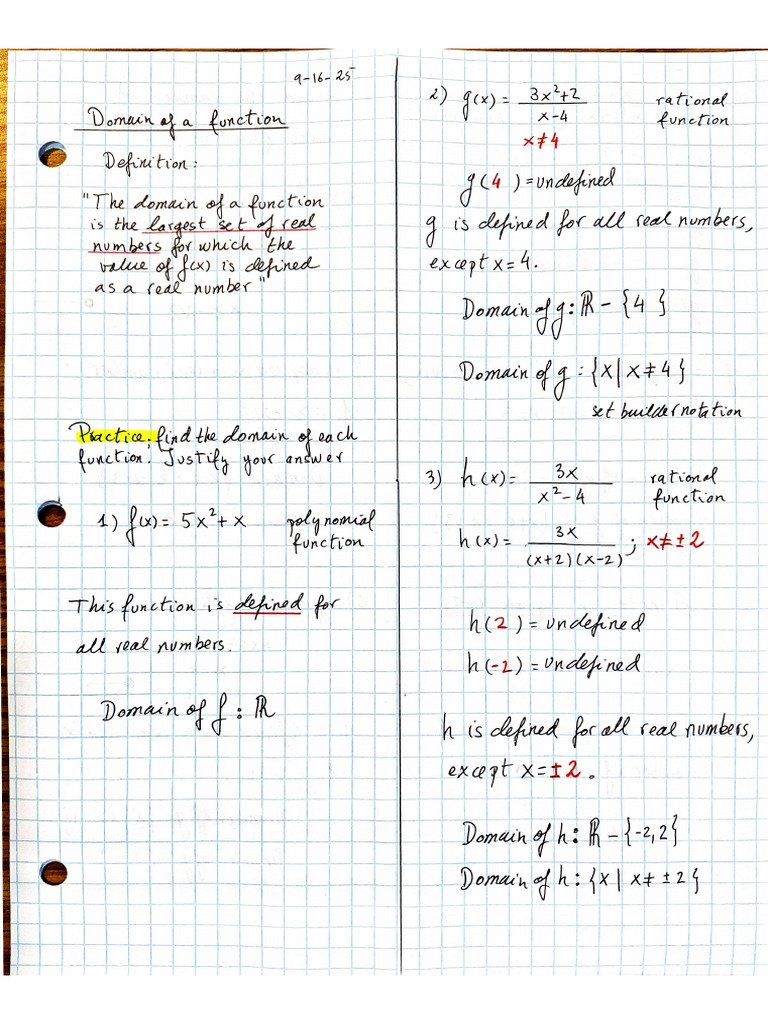 9-16-25
Domain of a function
Definition:
"The domain of a function
is the largest set of real
numbers for which the
value of f(x) is defined
as a real number"
Practice: find the domain of each
function. Justify your answer
1) f(x) = 5x² + x polynomial
function
This function is defined for
all real numbers.
Domain of f : ℝ
2) g(x) = (3x²+2)/(x-4) rational
function
x≠4
g(4) = undefined
g is defined for all real numbers,
except x=4.
Domain of g: ℝ - {4}
Domain of g : {x| x≠4}
set builder notation
3) h(x) = 3x/(x²-4) rational
function
h(x) = 3x/((x+2)(x-2)) ; x≠±2
h(2) = undefined
h(-2) = undefined
h is defined for all real numbers,
except x=±2.
Domain of h: ℝ - {-2,2}
Domain of h: {x| x≠ ±2}